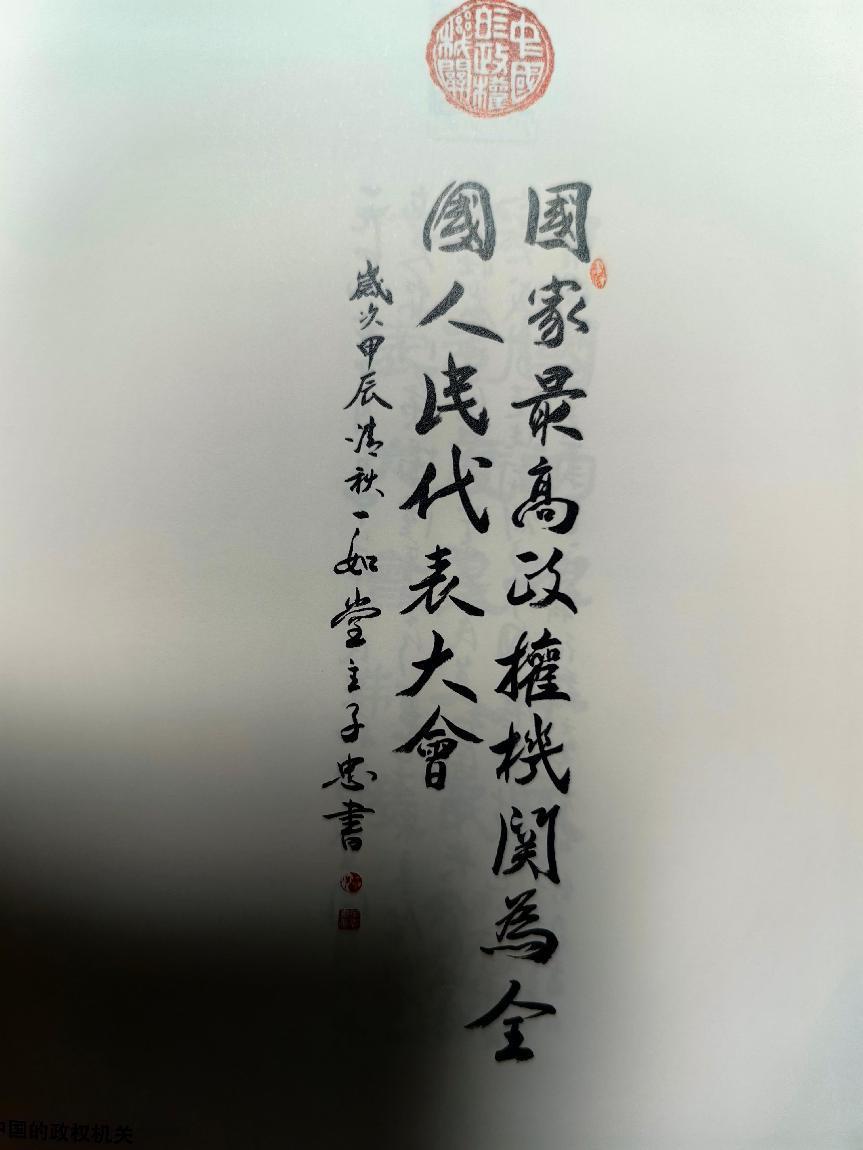 中國
的政權
機關
國家最高政權機関為全
國人民代表大會
歲次甲辰清秋一如堂主子忠書
中国的政权机关